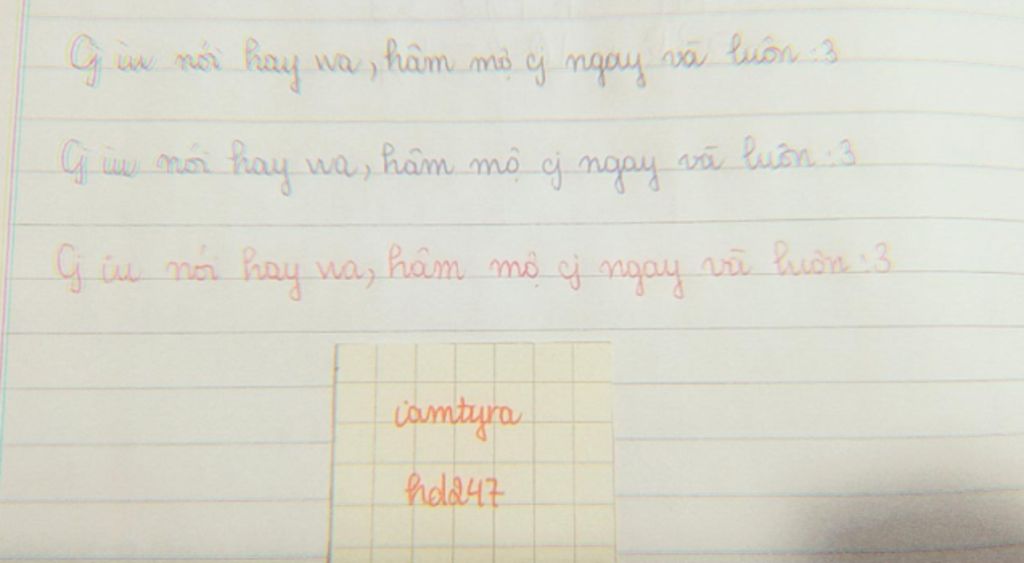 Cj iu nói hay wa, hâm mộ cj ngay và luôn :3
Cj iu nói hay wa, hâm mộ cj ngay và luôn :3
Cj iu nói hay wa, hâm mộ cj ngay và luôn :3
iamtyra
hd247